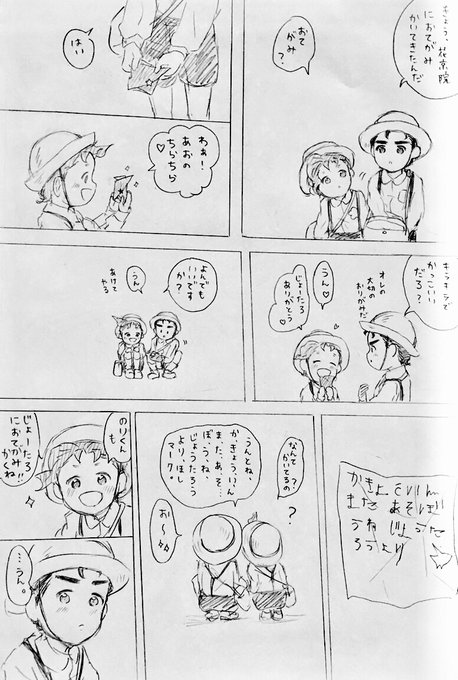 きょう、花京院
におてがみ
かいてきたんだ
おて
がみ?
はい
わぁ!
あおの
ちらちら♡
キラキラで
かっこいい
だろ?
オレの
大切の
おりがみだ
うん♡
じょーたろ
ありがとう
よんでも
いいです
か?
うん
あけて
やる
なんて
かいてるの
?
うんとね、
か、きょう、いん
ま、た、あ、そ…
ぼ、う、ね、
じょうたろう
より、ほし
マーク。
お〜
のりくん
も
じょーたろ
におてがみ
かくね!!
…うん。